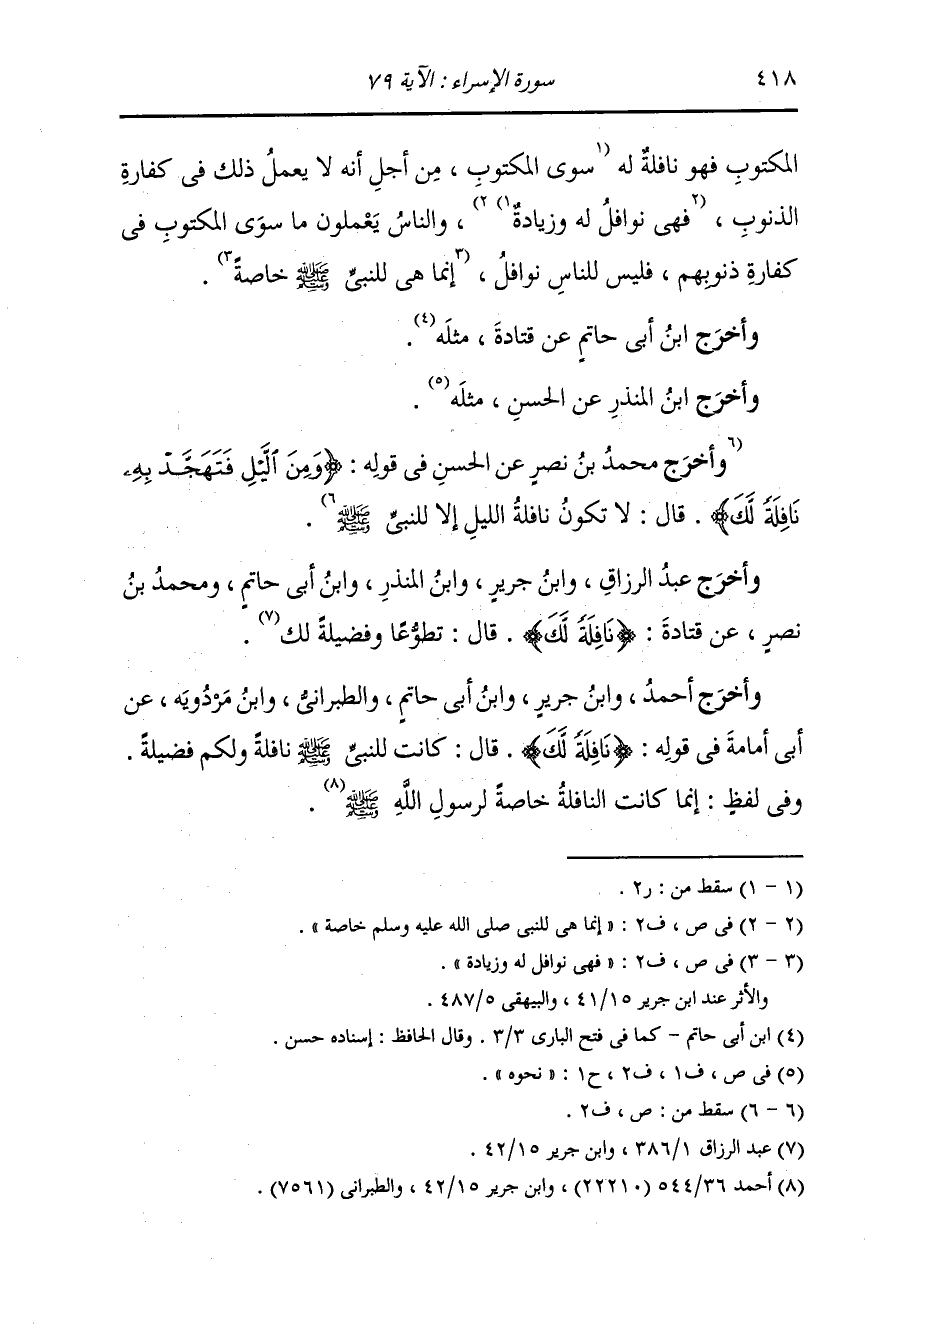 ٤١٨
سورة الإسراء : الآية ٧٩
المكتوبِ فهو نافلةٌ له (١سوى المكتوبِ ، مِن أجلِ أنه لا يعملُ ذلك فى كفارةِ
الذنوبِ ، (٢فهى نوافلُ له وزيادةٌ١) ٢) ، والناسُ يَعْملون ما سوَى المكتوبِ فى
كفارةِ ذنوبِهم ، فليس للناسِ نوافلُ ، (٣إنما هى للنبىِّ ﷺ خاصةً٣) .
وأخرَج ابنُ أبى حاتمٍ عن قتادةَ ، مثلَه(٤) .
وأخرَج ابنُ المنذرِ عن الحسنِ ، مثلَه(٥) .
(٦وأخرَج محمدُ بنُ نصرٍ عن الحسنِ فى قولِه : ﴿وَمِنَ ٱلَّيْلِ فَتَهَجَّدْ بِهِۦ
نَافِلَةً لَّكَ﴾ . قال : لا تكونُ نافلةُ الليلِ إلا للنبىِّ ﷺ٦) .
وأخرَج عبدُ الرزاقِ ، وابنُ جريرٍ ، وابنُ المنذرِ ، وابنُ أبى حاتمٍ ، ومحمدُ بنُ
نصرٍ ، عن قتادةَ : ﴿نَافِلَةً لَّكَ﴾ . قال : تطوُّعًا وفضيلةً لك(٧) .
وأخرَج أحمدُ ، وابنُ جريرٍ ، وابنُ أبى حاتمٍ ، والطبرانىُّ ، وابنُ مَرْدُويَه ، عن
أبى أمامةَ فى قولِه : ﴿نَافِلَةً لَّكَ﴾ . قال : كانت للنبىِّ ﷺ نافلةً ولكم فضيلةً .
وفى لفظٍ : إنما كانت النافلةُ خاصةً لرسولِ اللَّهِ ﷺ(٨) .
(١ - ١) سقط من : ر٢ .
(٢ - ٢) فى ص ، ف٢ : « إنما هى للنبى صلى الله عليه وسلم خاصة » .
(٣ - ٣) فى ص ، ف٢ : « فهى نوافل له وزيادة » .
والأثر عند ابن جرير ٤١/١٥ ، والبيهقى ٤٨٧/٥ .
(٤) ابن أبى حاتم - كما فى فتح البارى ٣/٣ . وقال الحافظ : إسناده حسن .
(٥) فى ص ، ف١ ، ف٢ ، ح١ : « نحوه » .
(٦ - ٦) سقط من : ص ، ف٢ .
(٧) عبد الرزاق ٣٨٦/١ ، وابن جرير ٤٢/١٥ .
(٨) أحمد ٥٤٤/٣٦ (٢٢٢١٠) ، وابن جرير ٤٢/١٥ ، والطبرانى (٧٥٦١) .